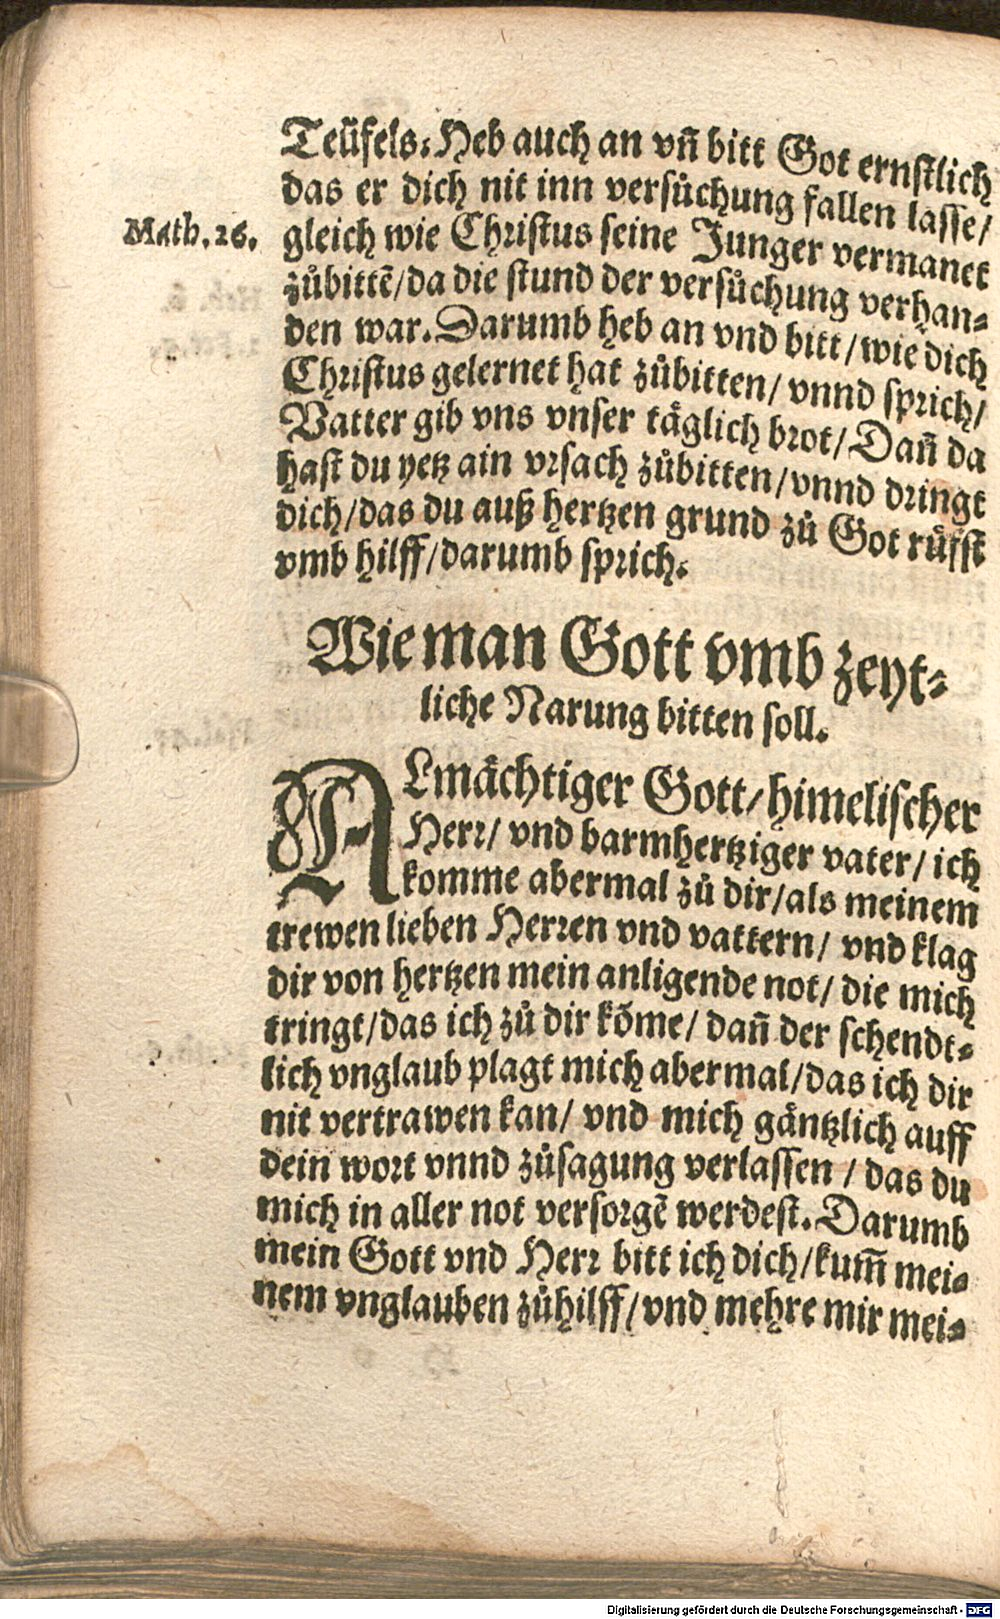 Teüfels: Heb auch an vñ bitt Got ernstlich
das er dich nit inn versůchung fallen lasse/
Math. 26.
gleich wie Christus seine Junger vermanet
zůbittẽ/da die stund der versůchung verhan-
den war. Darumb heb an vnd bitt/wie dich
Christus gelernet hat zůbitten/ vnnd sprich/
Vatter gib vns vnser täglich brot/ Dañ da
hast du yetz ain vrsach zůbitten/vnnd dringt
dich/das du auß hertzen grund zů Got růfst
vmb hilff/darumb sprich.
Wie man Gott vmb zeyt-
liche Narung bitten soll.
ALmächtiger Gott/himelischer
Herr/ vnd barmhertziger vater/ ich
komme abermal zů dir/als meinem
trewen lieben Herren vnd vattern/ vnd klag
dir von hertzen mein anligende not/ die mich
tringt/das ich zů dir kõme/ dañ der schendt-
lich vnglaub plagt mich abermal/das ich dir
nit vertrawen kan/ vnd mich gäntzlich auff
dein wort vnnd zůsagung verlassen / das du
mich in aller not versorgẽ werdest. Darumb
mein Gott vnd Herr bitt ich dich/kum̃ mei-
nem vnglauben zůhilff/vnd mehre mir mei-
Digitalisierung gefördert durch die Deutsche Forschungsgemeinschaft - DFG